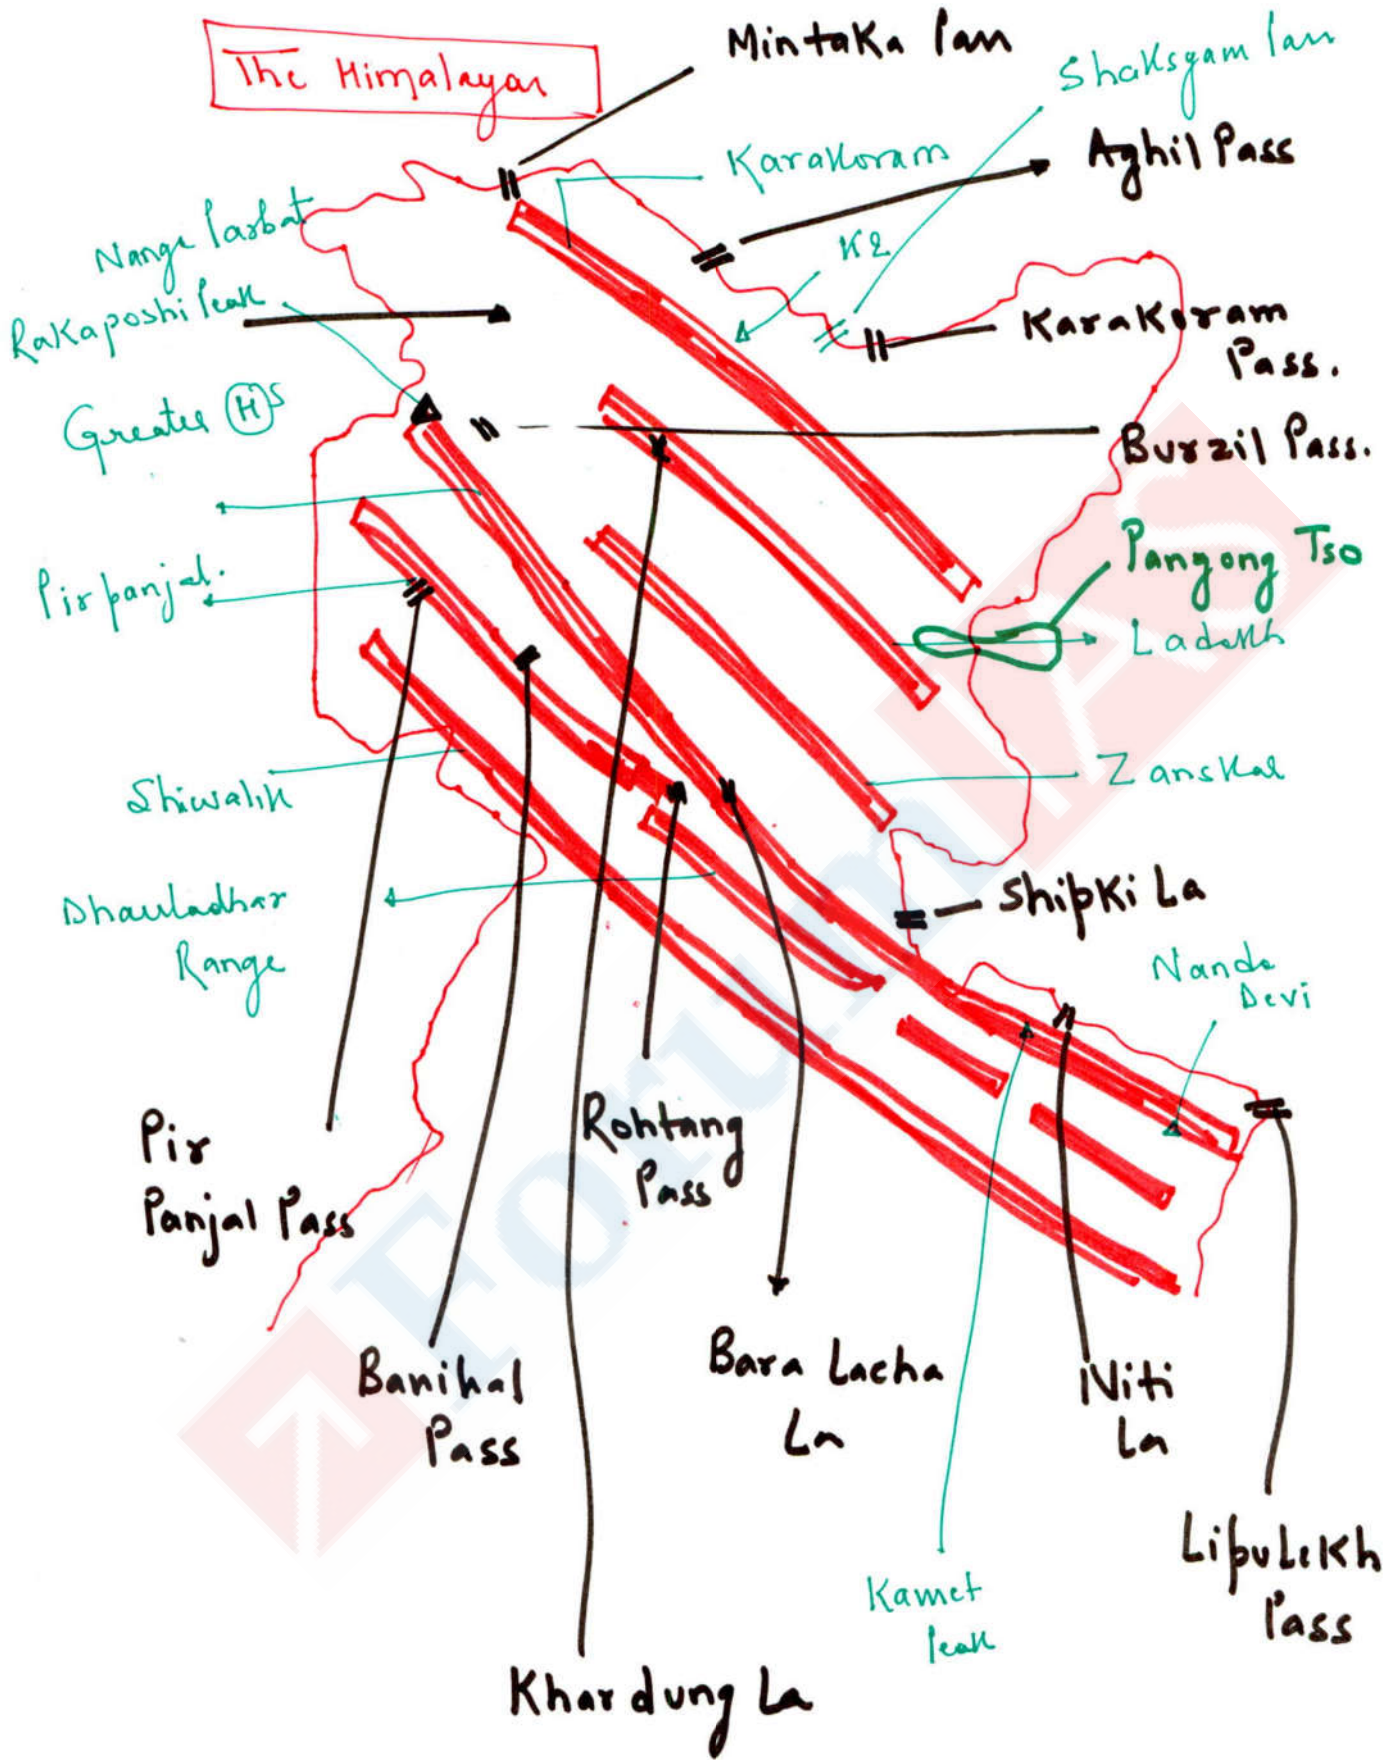 Mintaka Pass
The Himalayas
Shaksgam Pass
Karakoram
Aghil Pass
Nanga Parbat
K2
Rakaposhi Peak
Karakoram
Pass.
Greater (H)s
Burzil Pass.
Pangong Tso
Pir panjal.
Ladakh
Zanskar
Shiwalik
Dhauladhar
Range
Shipki La
Nanda
Devi
Pir
Panjal Pass
Rohtang
Pass
Banihal
Pass
Bara Lacha
La
Niti
La
Lipulekh
Pass
Kamet
Peak
Khardung La
ForumIAS